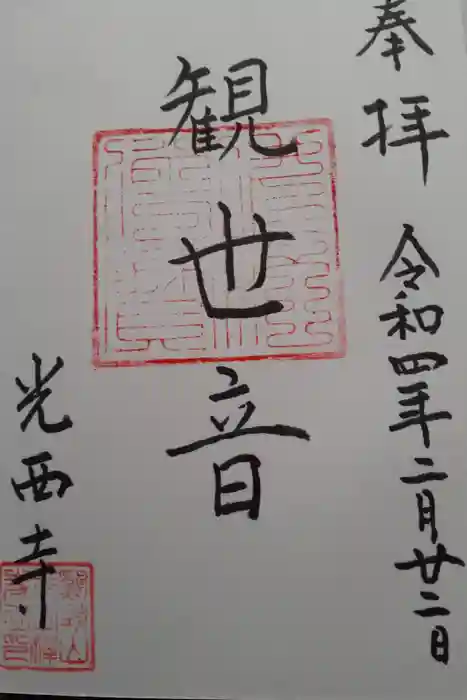 奉拝 令和四年二月廿二日
観世音
光西寺